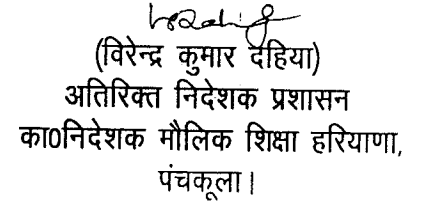 (विरेन्द्र कुमार देहिया)
अतिरिक्त निदेशक प्रशासन
का0निदेशक मौलिक शिक्षा हरियाणा,
पंचकूला।